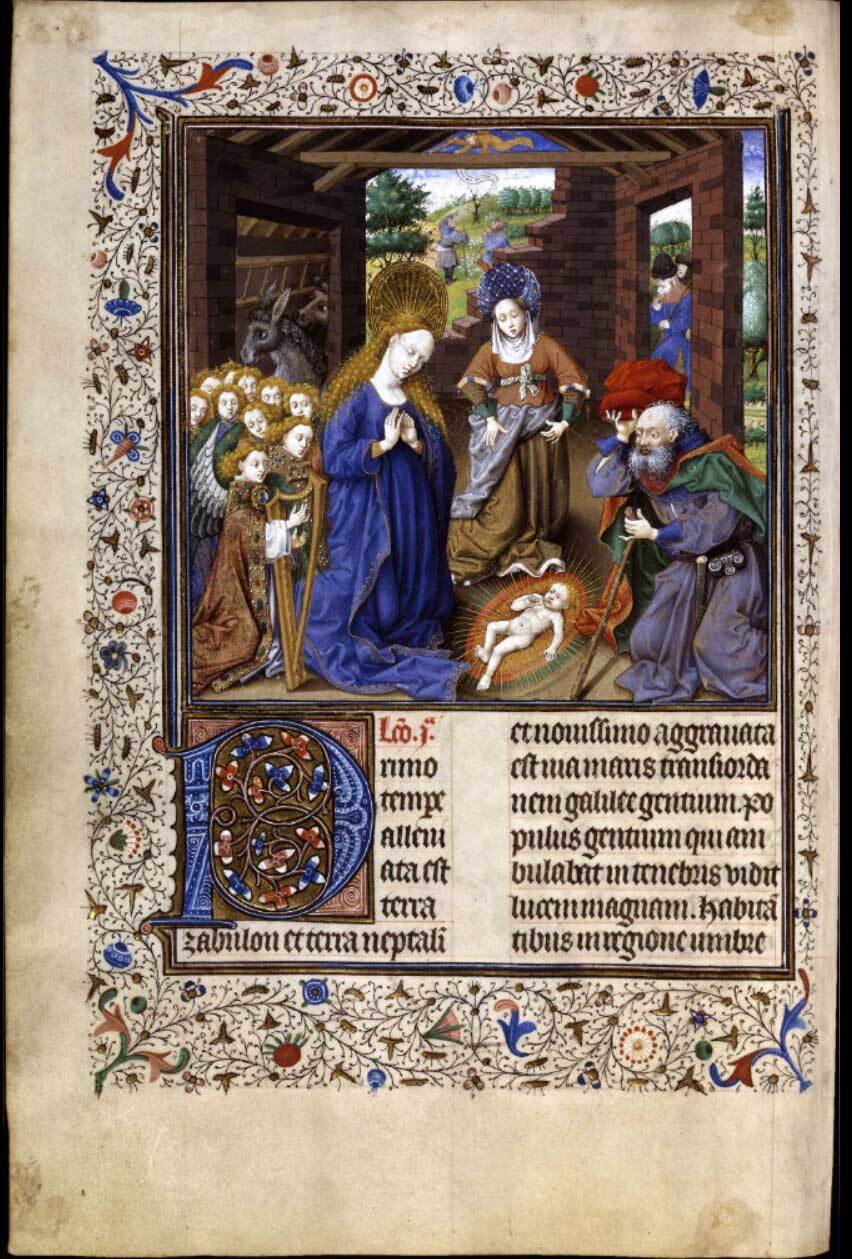 Lcō. jᵃ.
Primo
tempe
alleui
ata est
terra
zabulon et terra neptali
et nouissimo aggrauata
est uia maris transiorda
nem galilee gentium. po
pulus gentium qui am
bulabat in tenebris vidit
lucem magnam. habitā
tibus in regione umbre